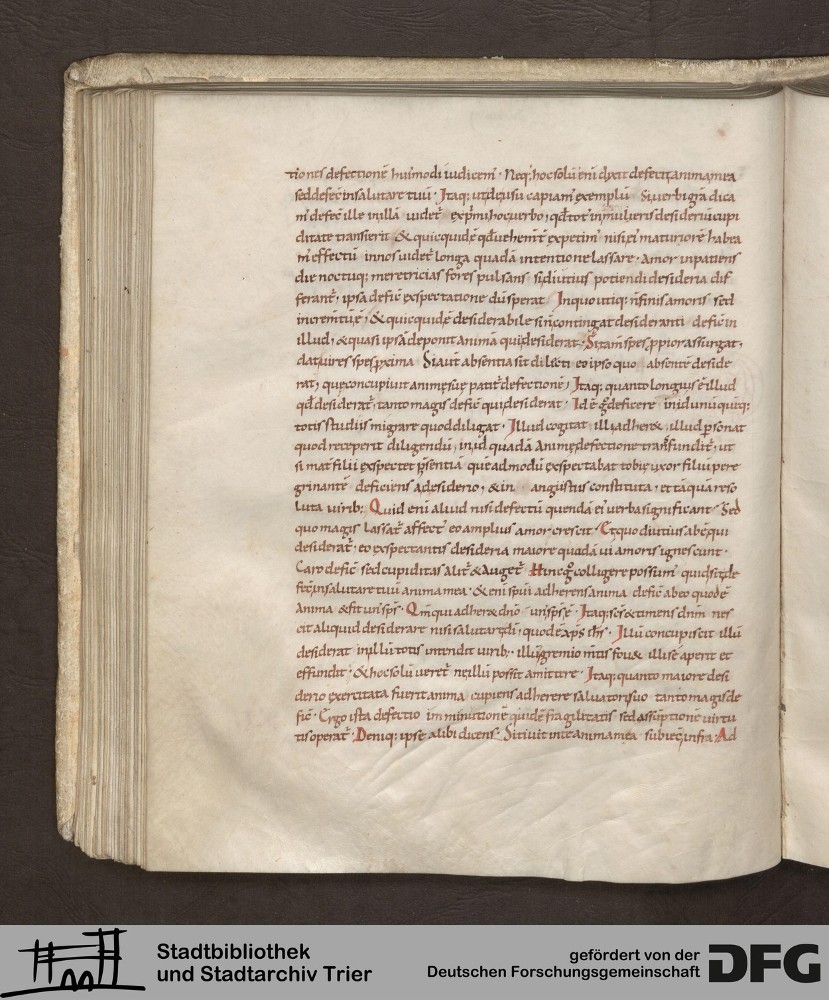 tionis defectionē huiꝰmodi iudicem᷑ · Neq; hoc solū eni dixit defecit anima mea
sed defec̄ in salutare tuū · Itaq; ut de usu capiam᷑ exemplū Si uerbi grā dica
m᷑ defec̄ ille in illā uidet᷑ exprimi hoc uerbo, qd tot᷑ in mulieris desideriū cupi
ditate transierit & quicquid ē qd uehement᷑ expetim᷑ nisi ei᷑ maturiorē habea
m᷑ effectū in nos uidet᷑ longa quadā intentione lassare · Amor inpatiens
die noctuq; meretricias fores pulsans si diutius potiendi desideria dif
ferant᷑, ipsa defic̄ exspectatione dū sperat Inquo utiq; n̄ finis amoris sed
incremtū ē, & quicquid ē desiderabile si n̄ contingat desideranti defic̄ in
illud, & quasi ipsā deponit animā qui desiderat · Si tam̄ spes ppior assurgat,
dat uires spes pxima Si aut̄ absentia sit dilecti eo ipso quo absentē deside
rat, quę concupiuit animę suę patit᷑ defectionē, Itaq; quanto longius ē illud
qd desiderat᷑, tanto magis defic̄ qui desiderat · Id ē g° deficere in id unū queq;
totis studiis migrare quod diligat · Illud cogitat illi adheret, illud psonat
quod receperit diligendū, in id quadā Animę defectione transfundit᷑, ut
si mat᷑ filii exspectet psentiā quēadmodū exspectabat tobię uxor filiū pere
grinantē deficiens a desiderio, & in angustiis constituta, et tāquā reso
luta uirib; Quid eni aliud nisi defectū quendā ei᷑ uerba significant Sed
quo magis lassat᷑ affect᷑ eo amplius amor crescit · Et quo diutius abē qui
desiderat᷑, eo exspectantis desideria maiore quadā ui amoris ignescunt ·
Caro defic̄ sed cupiditas alit᷑ & auget᷑ Hinc g° colligere possum᷑ quid sit de
fec̄ in salutare tuū anima mea · & eni spui adherens anima defic̄ ab eo quod ē
Anima & fit un᷑ sp̄s · Qm̄ qui adheret dn̄o un᷑ sp̄s ē · Itaq; sc̄s & timens dnm nes
cit aliquid desiderare nisi salutare di, quod ē xp̄s ih̄s · Illū concupiscit illū
desiderat in illū totis intendit uirib; illū gremio mtis fouet illi se aperit et
effundit & hoc solū ueret᷑ ne illū possit amittere · Itaq; quanto maiore desi
derio exercitata fuerit anima cupiens adherere saluatori suo tanto magis de
fic̄ · Ergo ista defectio imminutionē quidē fragilitatis sed assūptionē uirtu
tis operat᷑ · Deniq; ipse alibi dicens Sitiuit in te anima mea subiec̄ infra · Ad
Stadtbibliothek
und Stadtarchiv Trier
gefördert von der
Deutschen Forschungsgemeinschaft
DFG